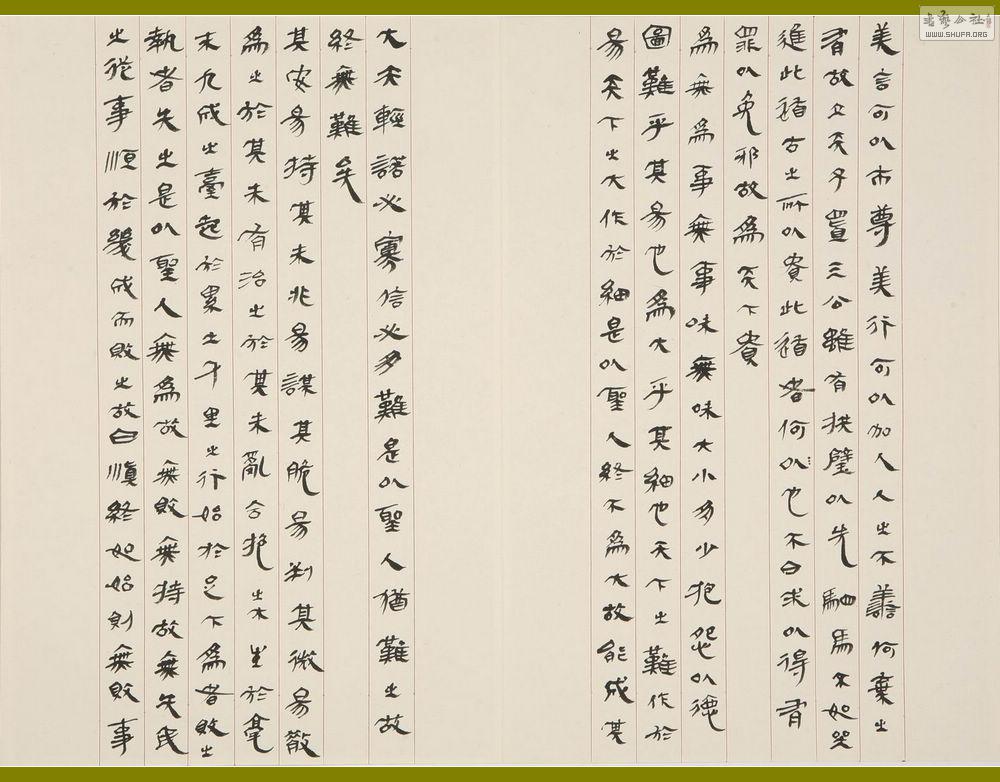 美言可以市尊美行可以加人人之不善何棄之
有故立天子置三公雖有拱璧以先駟馬不如坐
進此道古之所以貴此道者何以也不曰求以得有
罪以免邪故為天下貴
為無為事無事味無味大小多少抱怨以德
圖難乎其易也為大乎其細也天下之難作於
易天下之大作於細是以聖人終不為大故能成其
大夫輕諾必寡信必多難是以聖人猶難之故
終無難矣
其安易持其未兆易謀其脆易判其微易散
為之於其未有治之於其未亂合抱之木生於毫
末九成之臺起於累土千里之行始於足下為者敗之
執者失之是以聖人無為故無敗無持故無失民
之從事順於幾成而敗之故曰慎終如始則無敗事
书艺公社
WWW.SHUFA.ORG